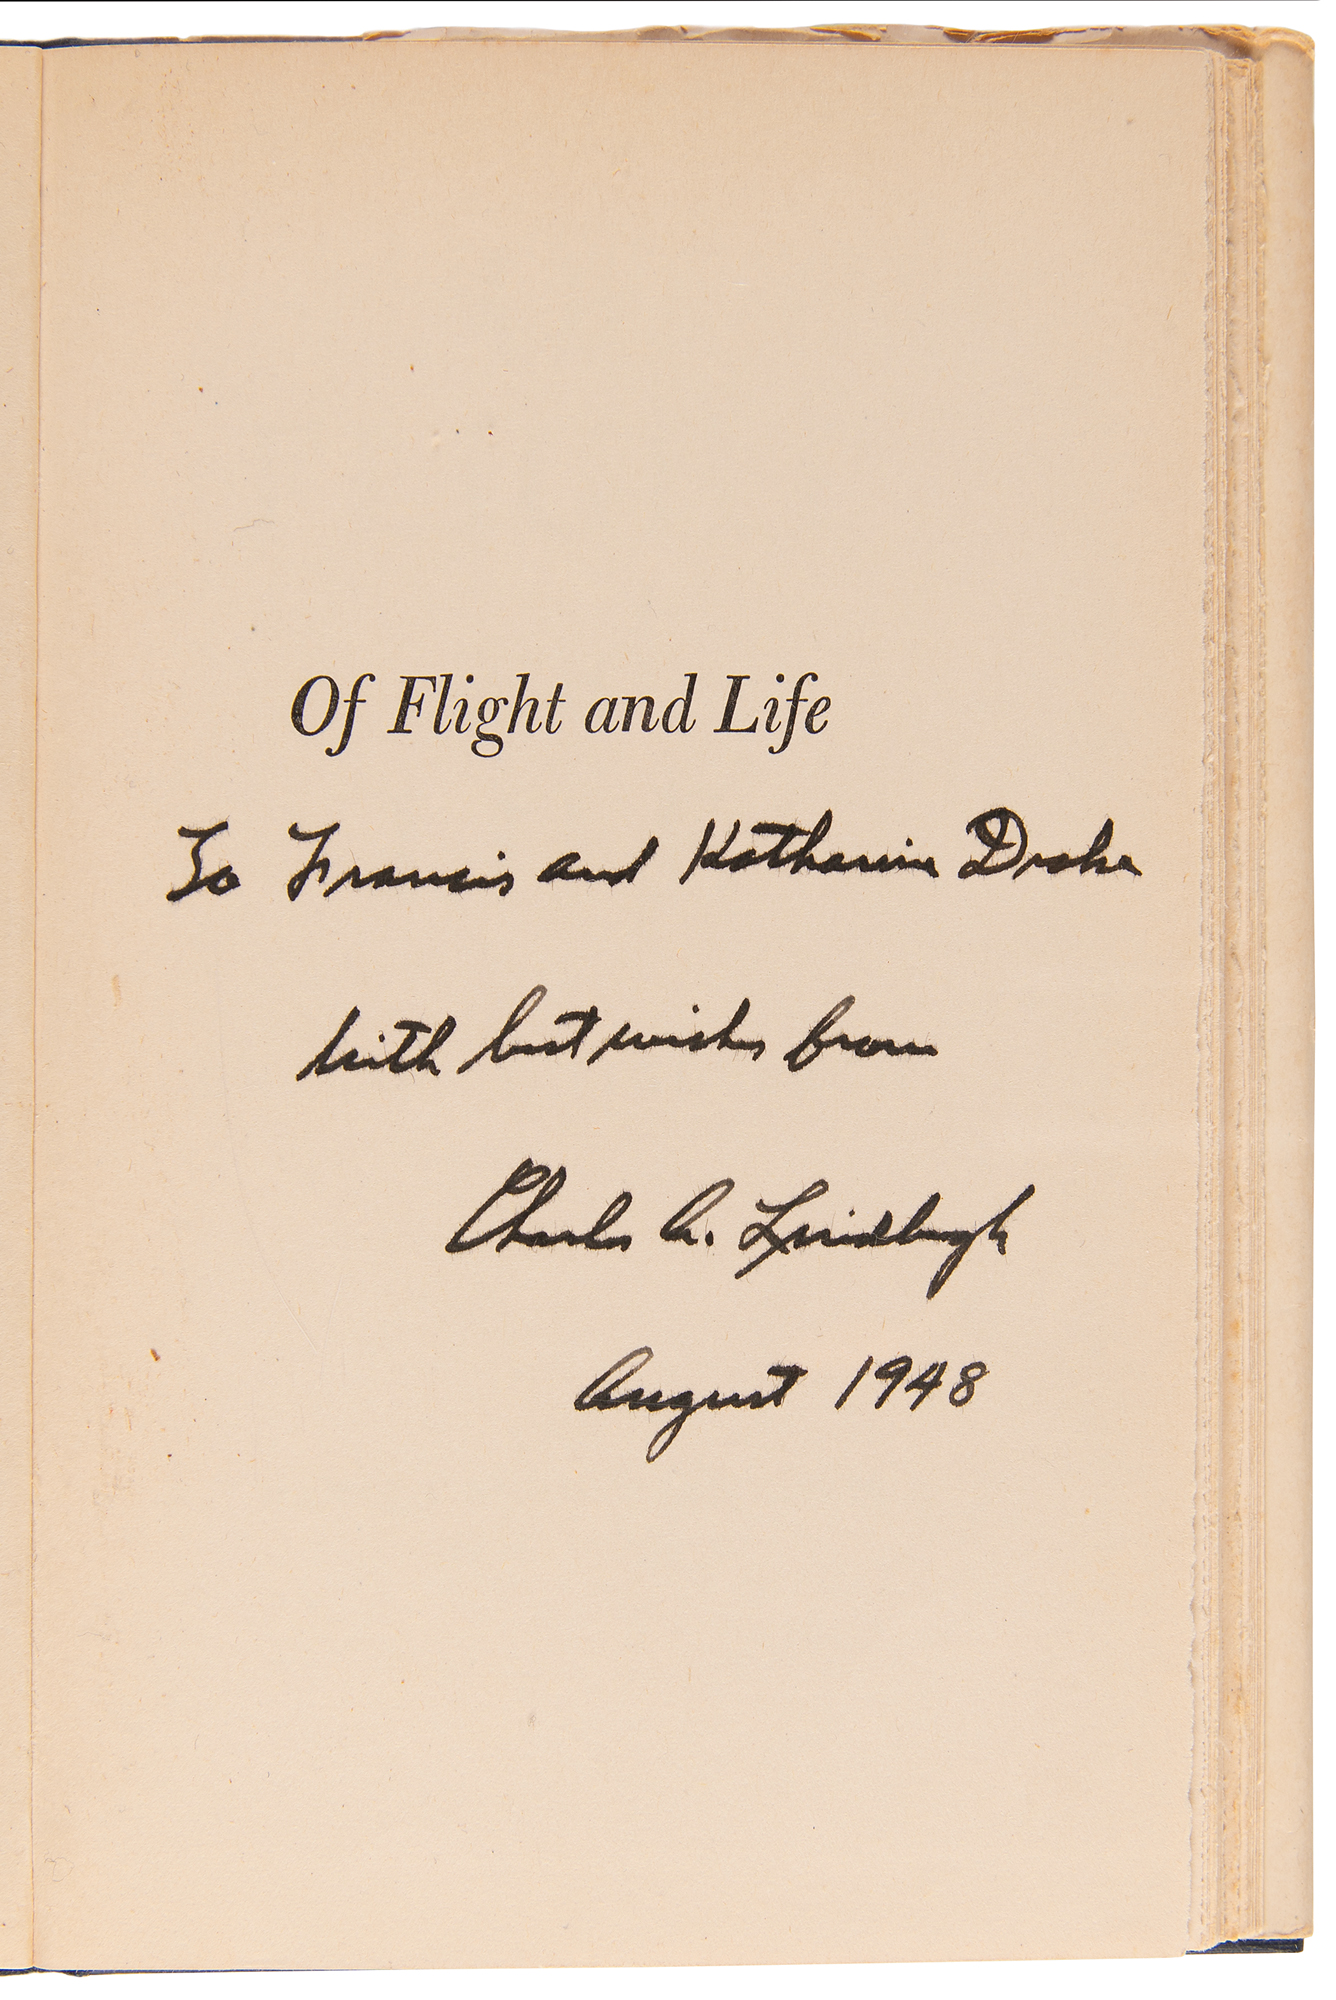 Of Flight and Life
To Francis and Katharine Drake
with best wishes from
Charles A. Lindbergh
August 1948